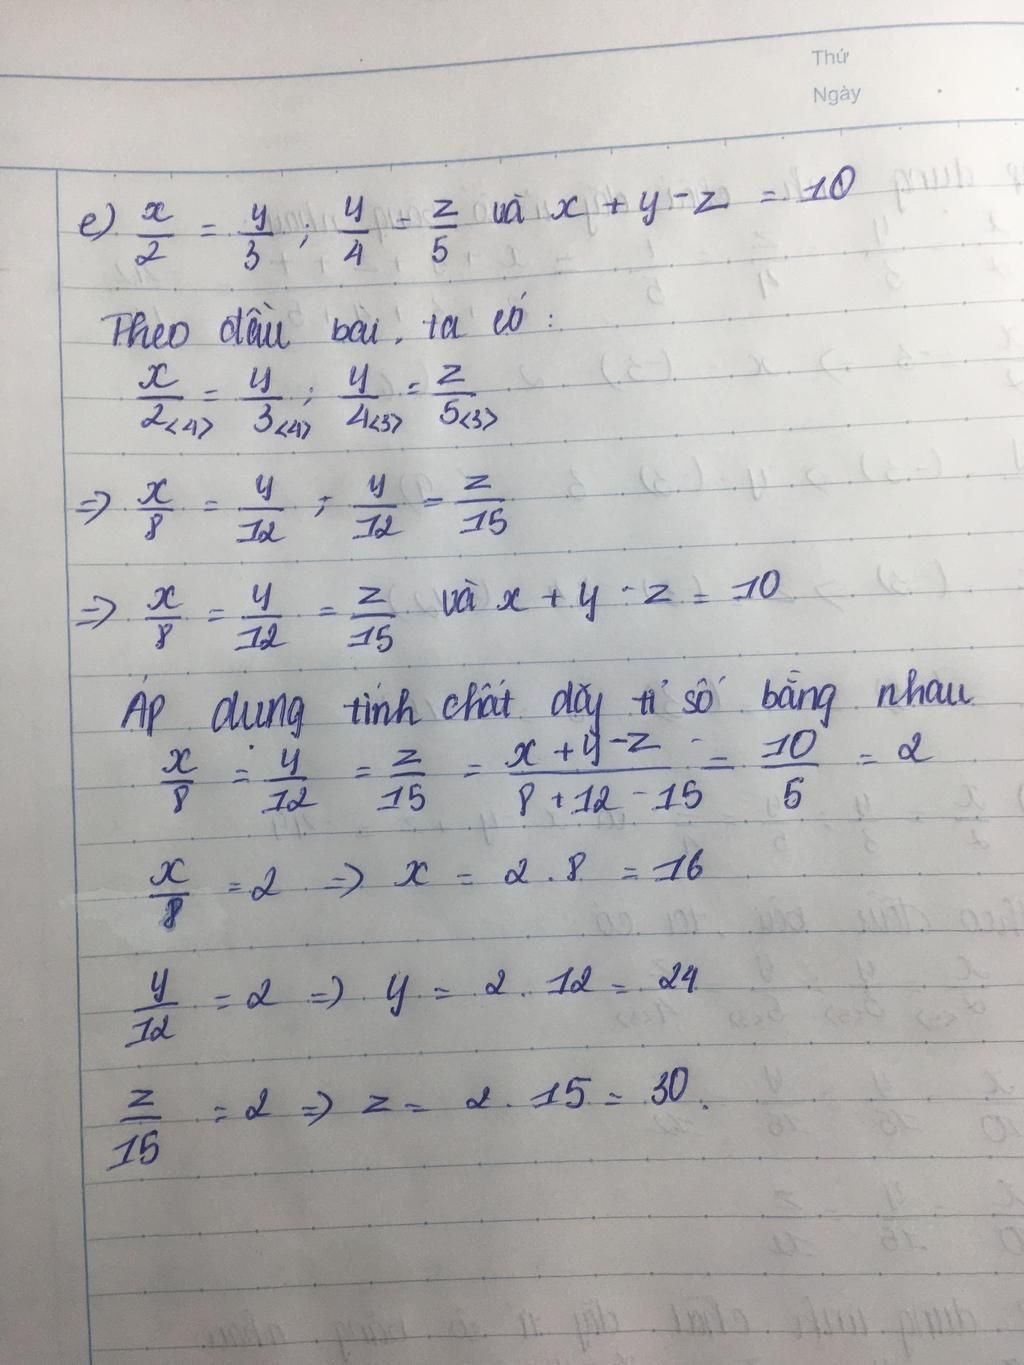 Thứ
Ngày
e) x/2 = y/3 ; y/4 = z/5 và x + y - z = 10
Theo đầu bài, ta có :
x/2<4> = y/3<4> ; y/4<3> = z/5<3>
=> x/8 = y/12 ; y/12 = z/15
=> x/8 = y/12 = z/15 và x + y - z = 10
Áp dụng tính chất dãy tỉ số bằng nhau
x/8 = y/12 = z/15 = x + y - z/8 + 12 - 15 = 10/5 = 2
x/8 = 2 => x = 2 . 8 = 16
y/12 = 2 => y = 2 . 12 = 24
z/15 = 2 => z = 2 . 15 = 30.